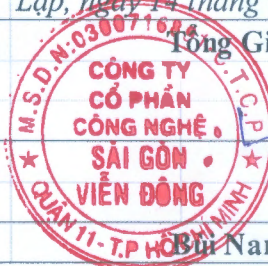 Lập, ngày 14 tháng
Tổng Gi
M.S.D.N:030071684
C.T.C.P
CÔNG TY
CỔ PHẦN
CÔNG NGHỆ
SÀI GÒN
VIỄN ĐÔNG
QUẬN 11 - T.P HỒ CHÍ MINH
Bùi Nam